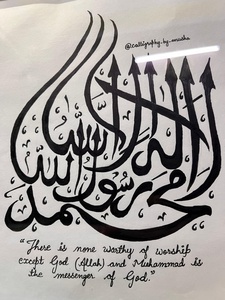 @calligraphy_by_misha
لا إله إلا الله
محمد رسول الله
"There is none worthy of worship
except God (Allah) and Muhammad is
the messenger of God."